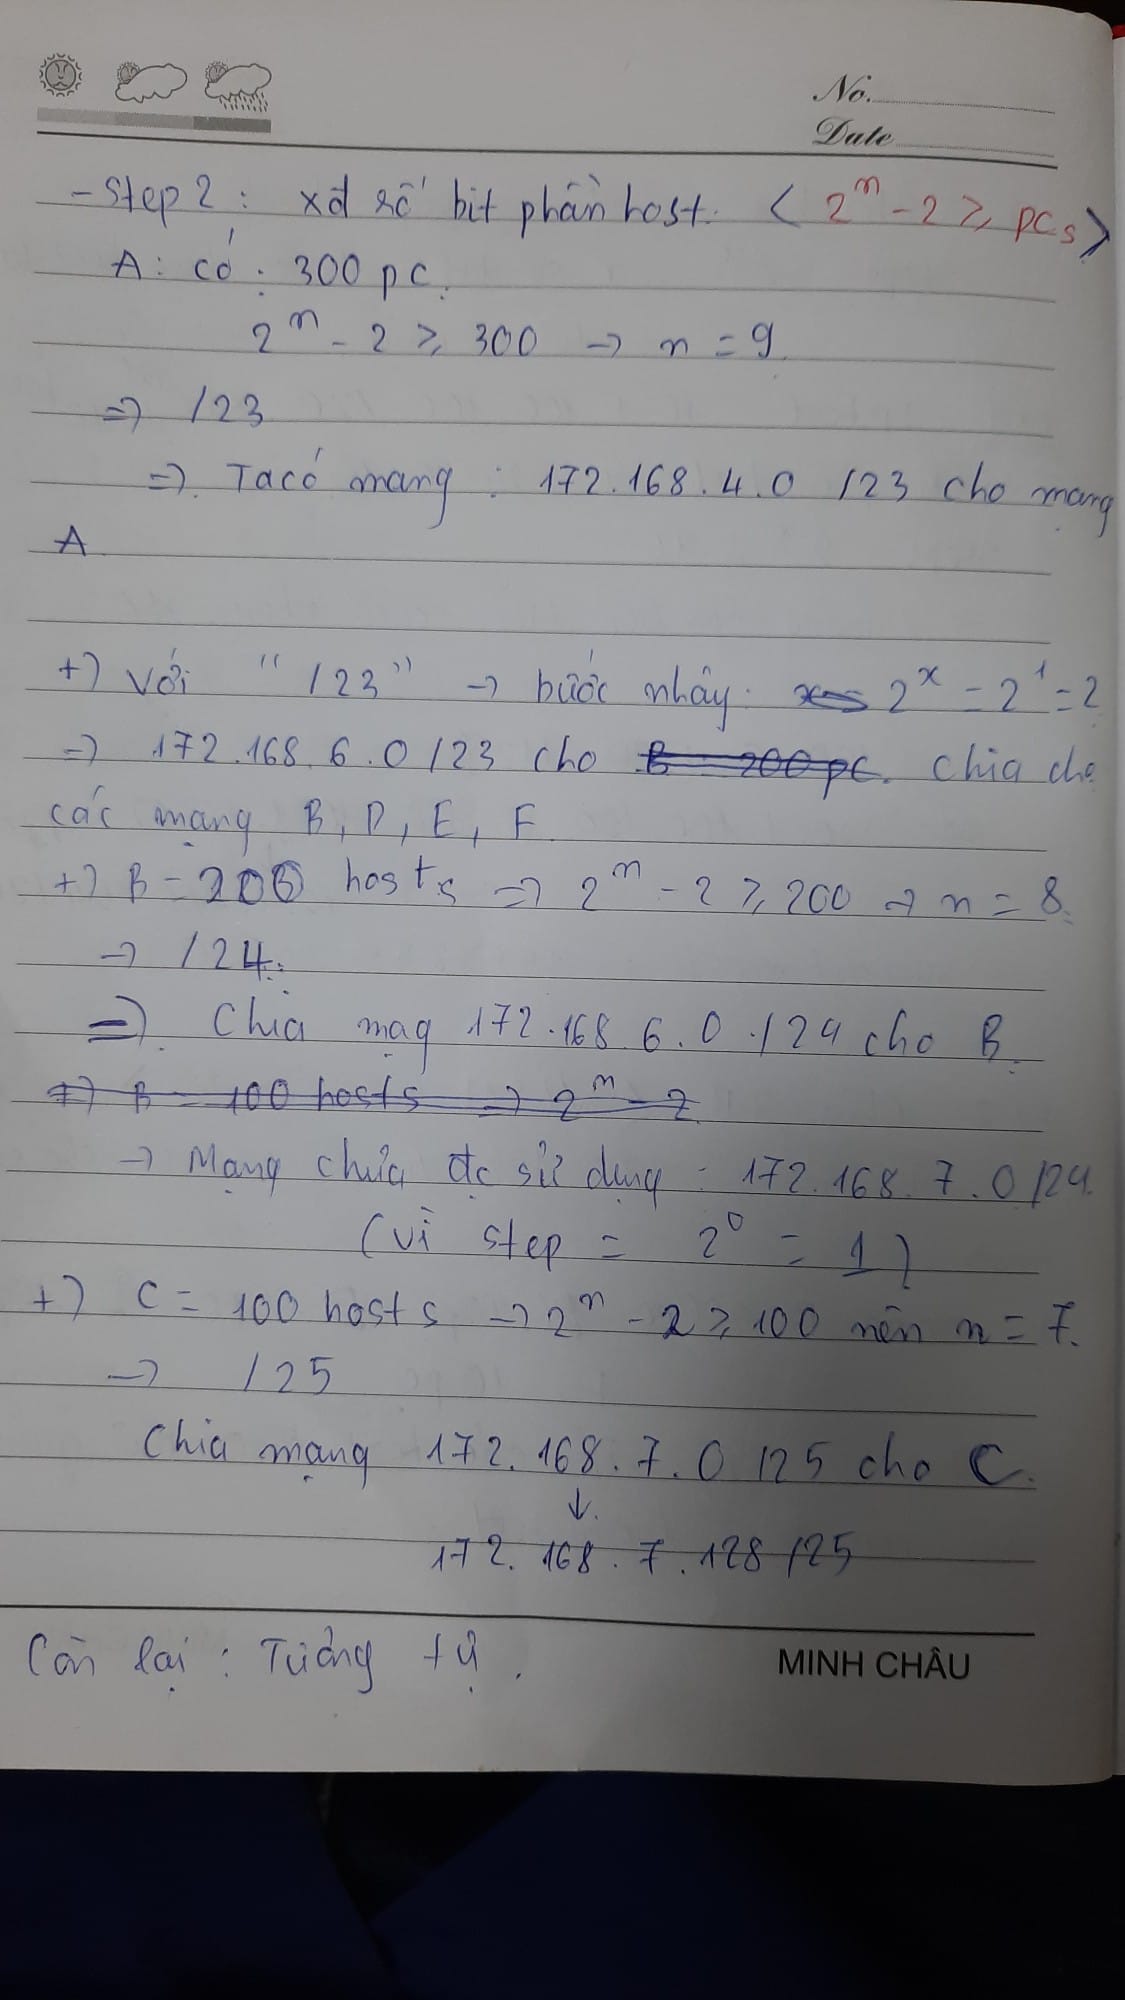 No.
Date
- Step 2: xđ số bit phần host. < 2^n - 2 ≥ pcs >
A: có: 300 pc.
2^n - 2 ≥ 300 → n = 9
=> /23
=> Ta có mạng: 172.168.4.0 /23 cho mạng
A
+) Với "/23" → bước nhảy: 2^x = 2^1 = 2
=> 172.168.6.0/23 cho B = 200 pc. chia cho
các mạng B, D, E, F
+) B = 200 hosts => 2^n - 2 ≥ 200 → n = 8.
→ /24.
=> Chia mạg 172.168.6.0./24 cho B.
+) B = 100 hosts => 2^n - 2
→ Mạng chưa đc sử dụng: 172.168.7.0/24.
(vì step = 2^0 = 1)
+) C = 100 hosts → 2^n - 2 ≥ 100 nên n = 7.
→ /25
Chia mạng 172.168.7.0/25 cho C.
↓
172.168.7.128/25
Còn lại: Tương tự.
MINH CHÂU